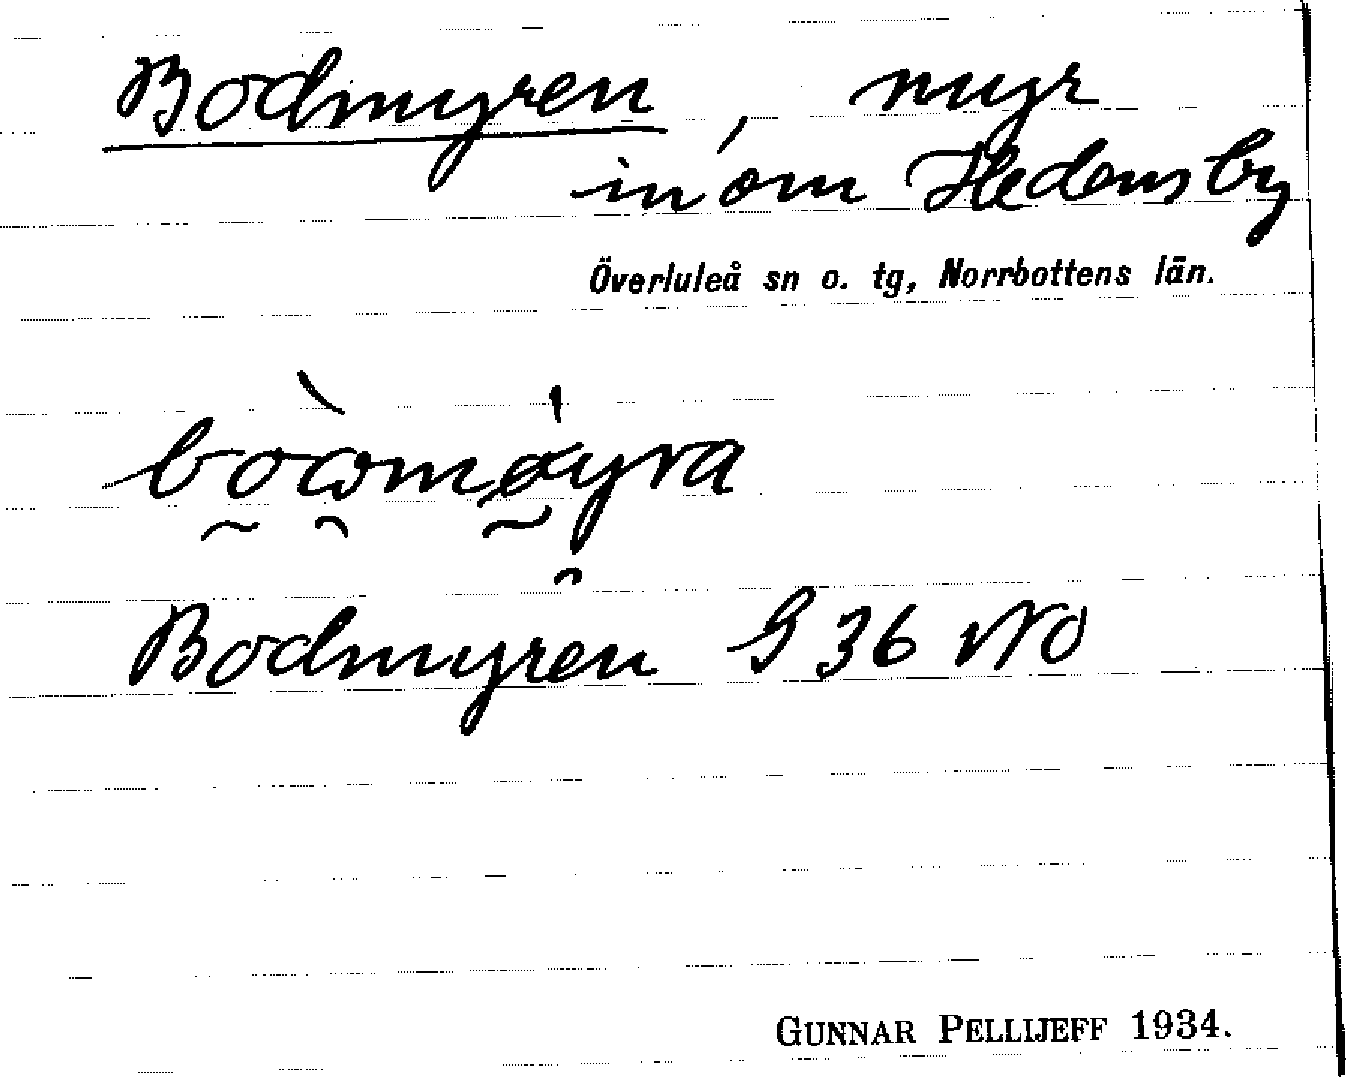 Bodmyren, myr
inom Hedensby
Överluleå sn o. tg, Norrbottens län.
boωmøyra
Bodmyren G 36 NO
GUNNAR PELLIJEFF 1934.